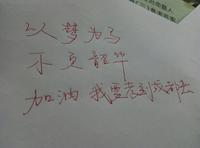 以梦为马
不负韶华
加油 我要考到成都去